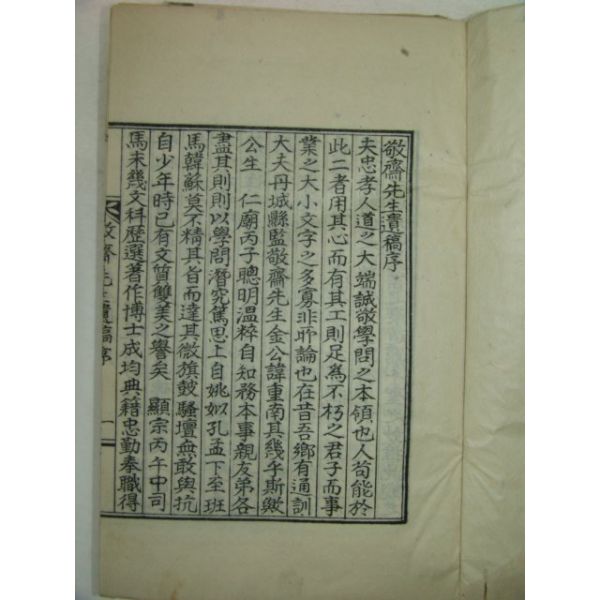 敬齋先生遺稿序
夫忠孝人道之大端誠敬學問之本領也人苟能於
此二者用其心而有其工則足爲不朽之君子而事
業之大小文字之多寡非所論也在昔吾鄕有通訓
大夫丹城縣監敬齋先生金公諱重南其幾乎斯歟
公生 仁廟丙子聰明溫粹自知務本事親友弟各
盡其則則以學問潛究篤思上自姚姒孔孟下至班
馬韓蘇莫不精其旨而達其微旗鼓騷壇無敢與抗
自少年時已有文質雙美之譽矣 顯宗丙午中司
馬未幾文科歷選著作博士成均典籍忠勤奉職得
敬齋先生遺稿序 一